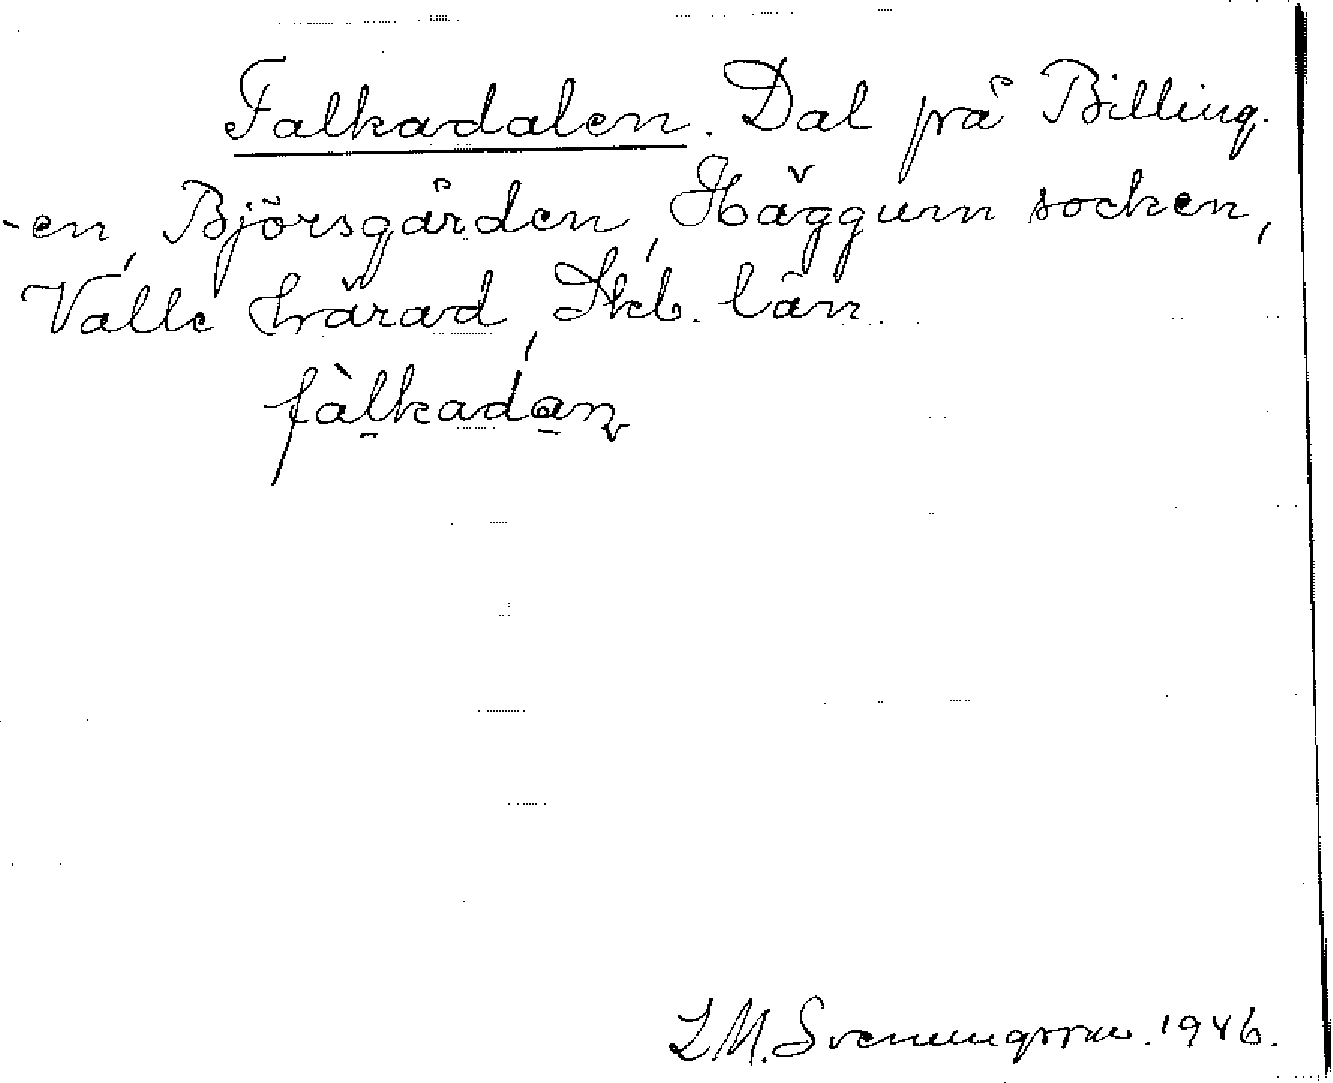 Falkadalen. Dal på Billing-
-en, Björsgården, Häggum socken,
Valle härad, Skb. län.
fàlkadan
L M. Svenungsson. 1946.